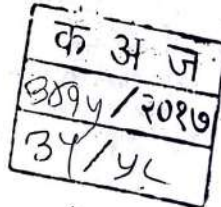 क अ ज
४७१५/२०१७
३५/५८